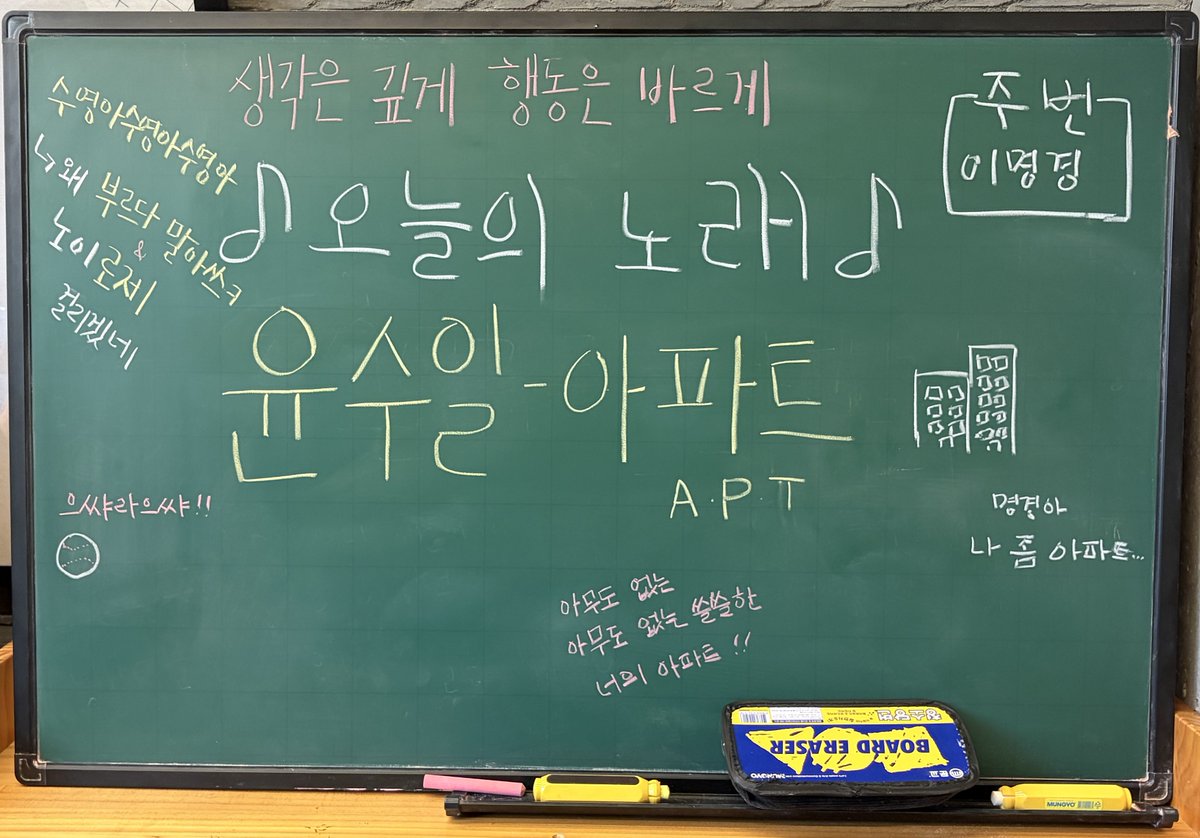 생각은 깊게 행동은 바르게
주번
이명경
수영아수영아수영아
↳ 왜 부르다 말아쓰ㅋ
&
노이로제
걸리겠네
♪오늘의 노래♪
윤수일-아파트
A.P.T
으쌰라으쌰!!
명경아
나 좀 아파트...
아무도 없는
아무도 없는 쓸쓸한
너의 아파트!!
청소당번
BOARD ERASER
MUNGYO
문교
MUNGYO